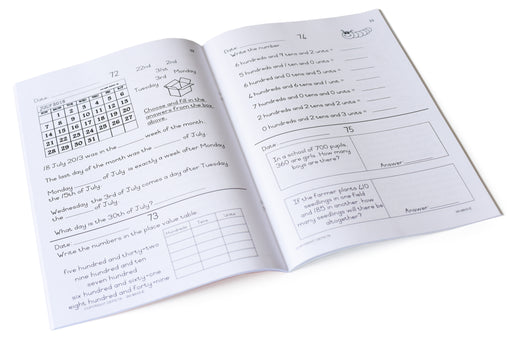 72
Date:
22nd 2nd
31st 3rd
Tuesday Monday
JULY 2013
7 8 9 10 11 12 13
14 15 16 17 18 19 20
21 22 23 24 25 26 27
28 29 30 31
Choose and fill in the
answers from the box
above.
18 July 2013 was in the week of the month.
The last day of the month was the of July.
Monday of July is exactly a week after Monday
the 15th of July.
Wednesday the 3rd of July comes a day after Tuesday
of July.
What day is the 30th of July?
73
Date:
Write the numbers in the place value table.
Hundreds Tens Units
five hundred and thirty-two
nine hundred and ten
seven hundred
six hundred and sixty-one
eight hundred and forty-nine
74
Date:
Write the number
6 hundreds and 9 tens and 2 units =
8 hundreds and 1 ten and 0 units =
5 hundreds and 0 tens and 5 units =
6 hundreds and 6 tens and 1 unit =
4 hundreds and 1 ten and 3 units =
7 hundreds and 0 tens and 0 units =
2 hundreds and 2 tens and 2 units =
0 hundreds and 2 tens and 3 units =
75
Date:
In a school of 700 pupils,
360 are girls. How many
boys are there?
Answer
If the farmer plants 610
seedlings in one field
and 185 in another, how
many seedlings will there be
altogether?
Answer